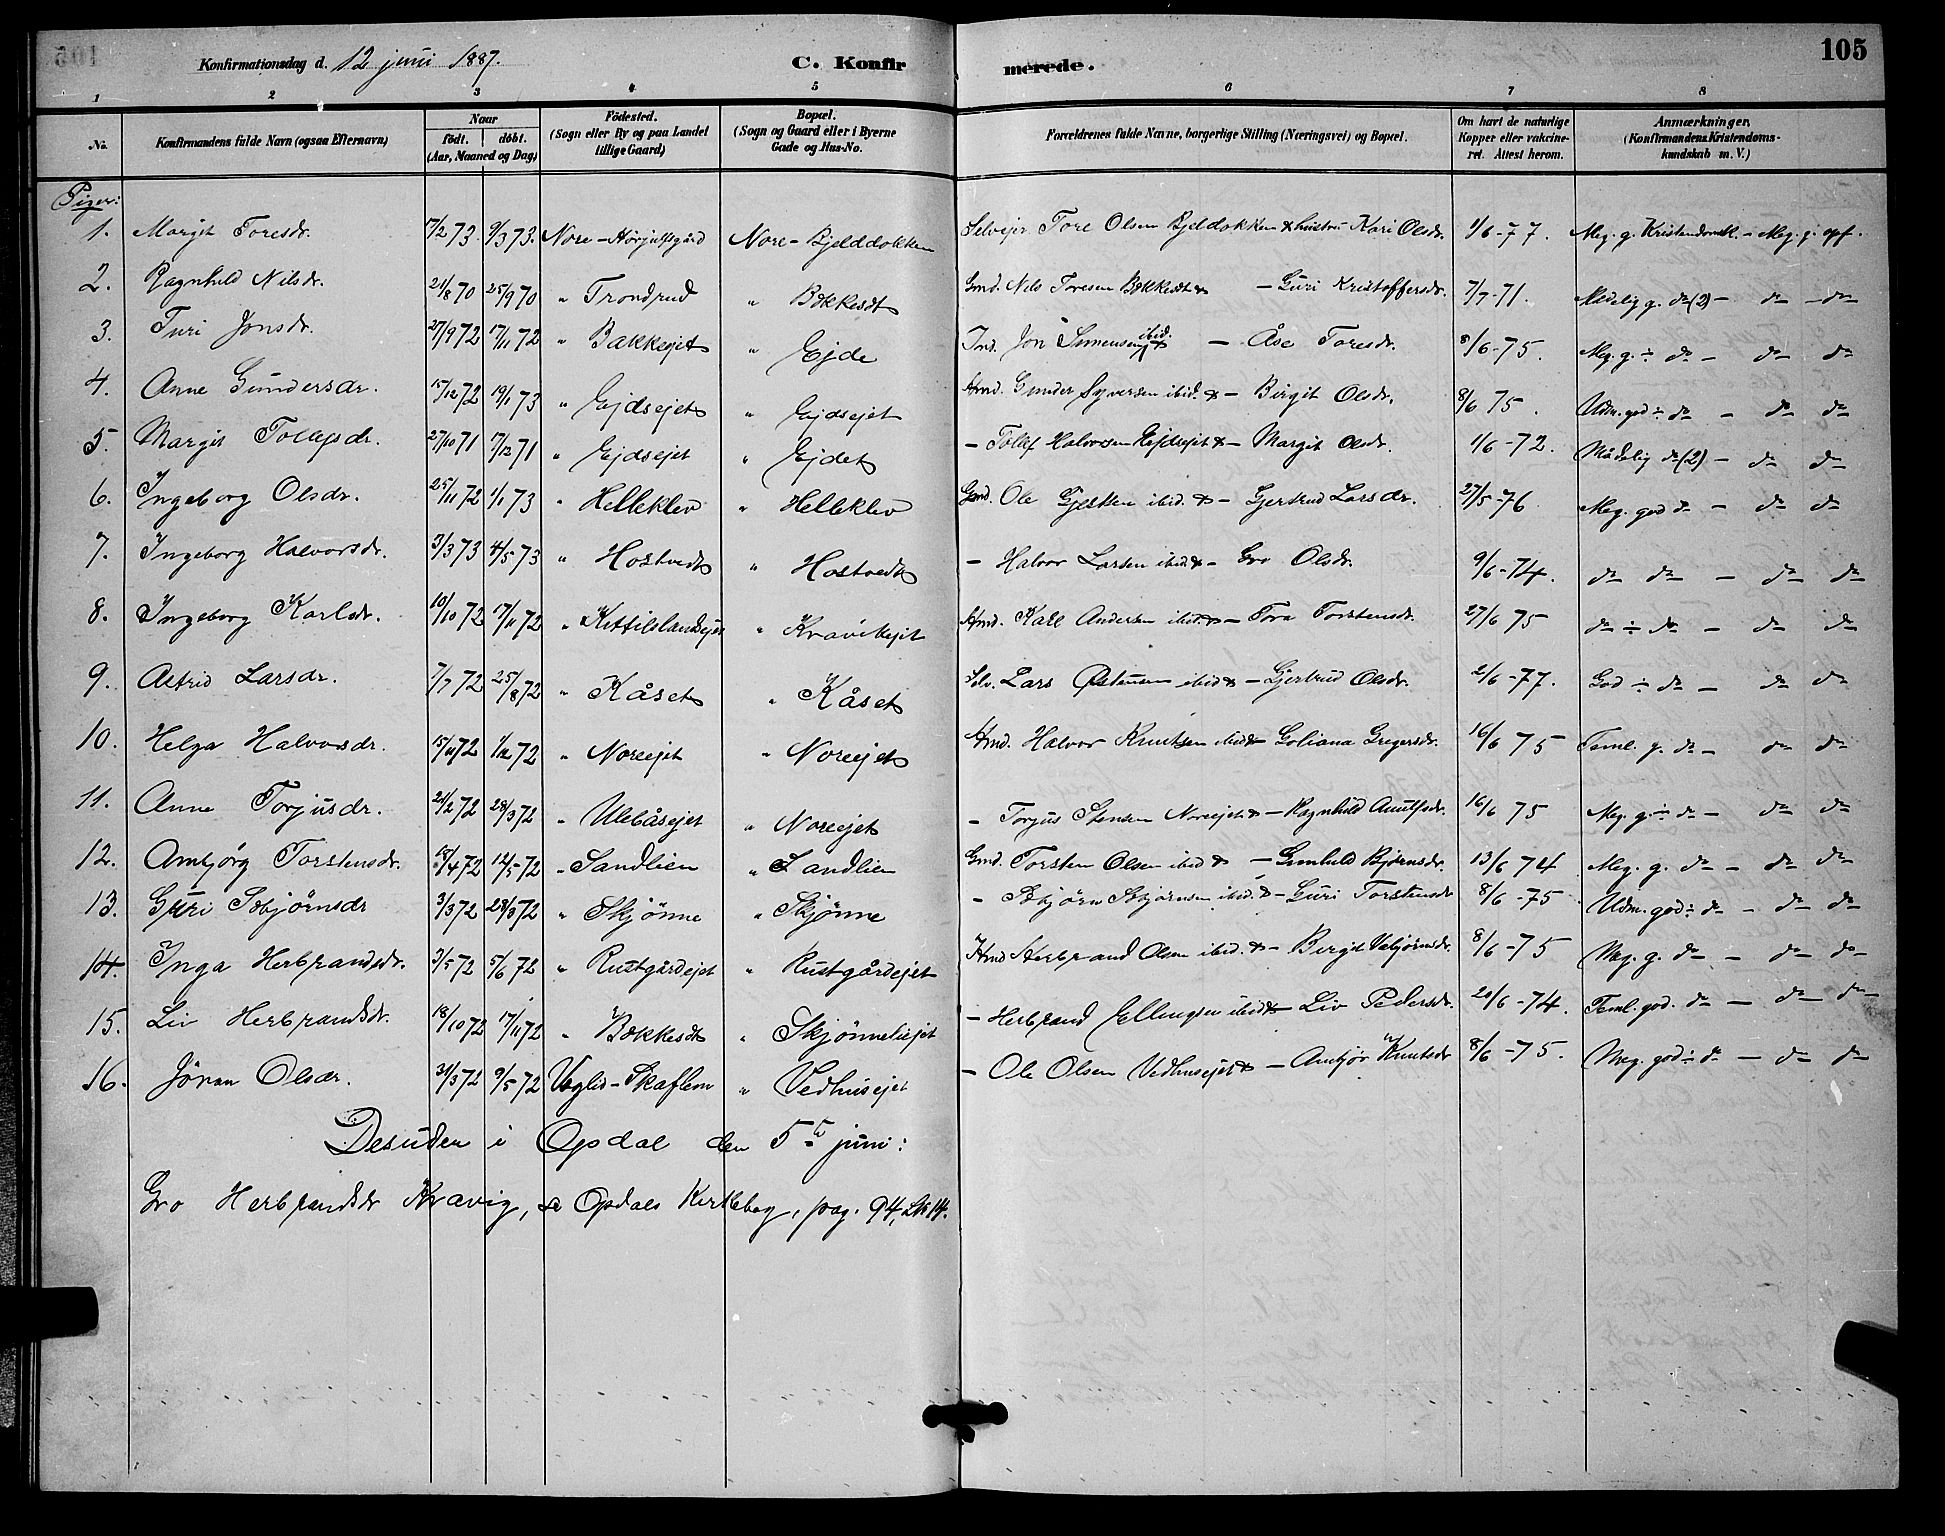 105
Konfirmationsdag d. 12 juni 1887.
C. Konfirmerede.
1 2 3 4 5 6 7 8
No.
Konfirmandens fulde Navn (ogsaa Efternavn)
Naar
født. døbt.
(Aar, Maaned og Dag)
Fødested.
(Sogn eller By og paa Landet
tillige Gaard)
Bopæl.
(Sogn og Gaard eller i Byerne
Gade og Hus-No.
Forældrenes fulde Navne, borgerlige Stilling (Næringsvei) og Bopæl.
Om havt de naturlige
Kopper eller vakcine-
ret. Attest herom.
Anmærkninger.
(Konfirmandens Kristendoms-
kundskab m. V.)
Piger:
1. Margit Toresdr. 17/2 73. 9/3 73. Nore - Hørjulfsgård Nore - Bjelddokken Selvejer Tore Olsen Bjeldokken & hustru Kari Olsdr. 1/6-77. Meg. g. Kristendomsk. - Meg. g. opf.
2. Ragnhild Nilsdr. 21/8 70 25/9 70 " Trondrud " Bækkesdt Gmd. Nils Toresen Bækkesdt & - Guri Kristoffersdr. 7/7-71. Mådelig g. do (2) - do - do
3. Turi Jonsdr. 27/9 72 17/11 72 " Bakkeejet " Ejde Ind. Jon Simensen ibid. & - Åse Toresdr. 8/6-75. Meg. g. ÷ do - do do
4. Anne Gundersdr. 15/12 72 19/1 73 " Ejdsejet " Ejdsejet Hmd. Gunder Syversen ibid. & - Birgit Olsdr. 8/6 75. Udm. god ÷ do - do do
5. Margit Tollefsdr. 27/10 71 17/12 71 " Ejdsejet " Ejdet - Tollef Halvorsen Ejdsejet & - Margit Olsdr. 1/6-72. Mådelig do (2) - do do
6. Ingeborg Olsdr. 25/11 72 1/1 73 " Helleklev " Helleklev Gmd. Ole Gjesken ibid. & - Gjertrud Larsdr. 27/5-76 Meg. god do - do do
7. Ingeborg Halvorsdr. 3/3 73 4/5 73 " Hostvedt " Hostvedt - Halvor Larsen ibid & - Gro Olsdr. 9/6-74. do do - do do
8. Ingeborg Karlsdr. 10/10 72 17/11 72 " Kittilslandsejet " Kravikejet Hmd. Kall Andersen ibid. & - Tora Torstensdr. 27/6 75 do ÷ do - do do
9. Astrid Larsdr. 7/7 72 25/8 72 " Kåset " Kåset Selv. Lars Østensen ibid & - Gjertrud Olsdr. 2/6-77. God ÷ do - do do
10. Helga Halvorsdr. 15/11 72 1/12 72 " Noreejet " Noreejet Hmd. Halvor Knutsen ibid & - Goliana Gregersdr. 16/6 75 Teml. g. do - do do
11. Anne Torjusdr. 21/2 72 28/3 72 " Ulebåsejet " Noreejet - Torjus Stensen Noreejet & - Ragnhild Anulfsdr. 16/6 75 Meg. g. ÷ do - do do
12. Ambjørg Torstensdr. /4 72 12/5 72 " Sandlien " Sandlien Gmd. Torsten Olsen ibid & - Gunhild Bjørnsdr. 13/6 74 Meg. g. do - do do
13. Guri Sebjørnsdr 3/3 72 28/3 72 " Skjønne " Skjønne - Sebjørn Sebjørnsen ibid. & - Guri Torstensdr 8/6-75 Udm. god ÷ do - do do
14. Inga Herbrandsdr. 3/5 72 5/6 72 " Rustgårdejet " Rustgårdejet Hmd Herbrand Olsen ibid. & - Birgit Vebjørnsdr. 8/6-75 Meg. g. do - do do
15. Liv Herbrandsdr. 18/10 72 17/11 72 " Bækkesdt " Skjønneliejet - Herbrand Ellingsen ibid & - Liv Pedersdr. 20/6-74. Teml. god. do - do do
16. Jøran Olsdr. 31/3 72 9/5 72 Veglid - Skaflem " Vedhusejet - Ole Olsen Vedhusejet & - Ambjør Knutsdr 8/6-75. Meg. god ÷ do - do do
Desuden i Opdal den 5te juni:
Gro Herbrandsdr Kravig, se Opdals Kirkebog, pag. 94, No 14.